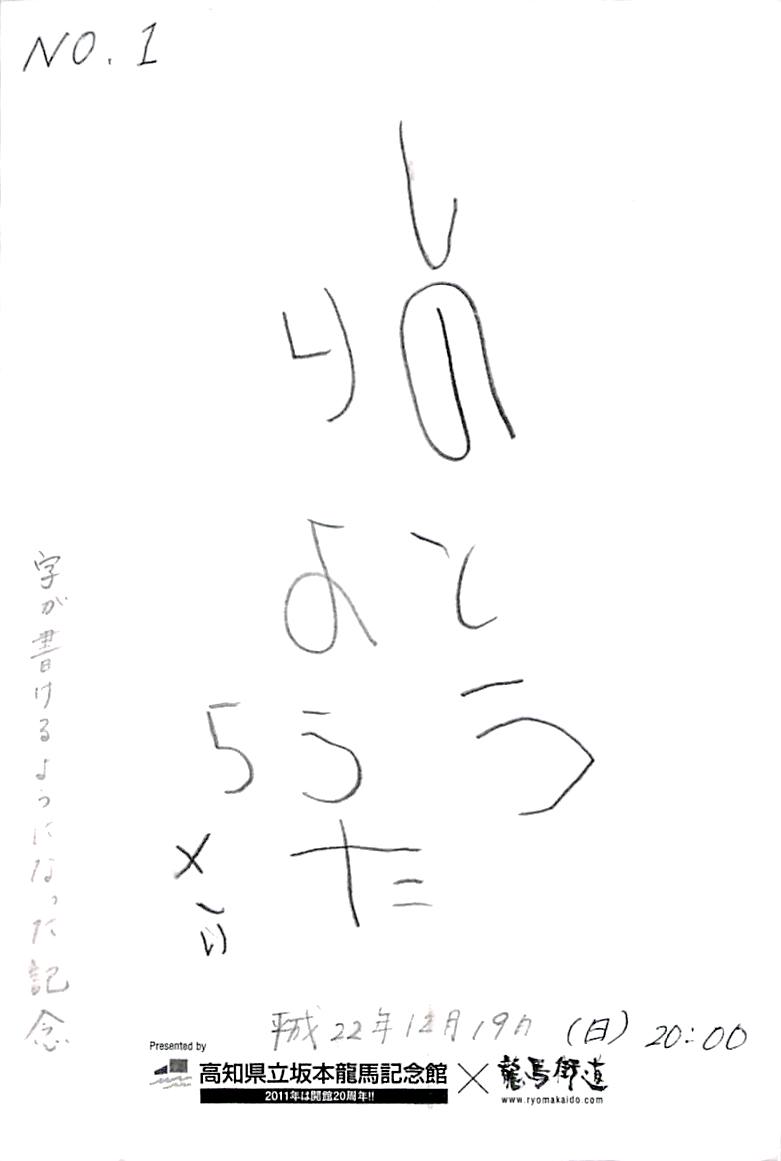 NO.1
しのとう
りよう た
5
字が書けるようになった記念
平成22年12月19日 (日) 20:00
Presented by
高知県立坂本龍馬記念館 × 龍馬街道
2011年は開館20周年!!
www.ryomakaido.com